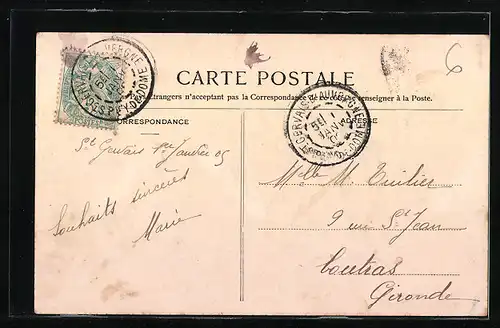 6
CARTE POSTALE
étrangers n'acceptent pas la Correspondance de renseigner à la Poste.
CORRESPONDANCE
ADRESSE
St Gervais 1er Janvier 05
Souhaits sincères
Marie
Melle M.
9 rue St Jean
Coutras
Gironde
ST GERVAIS-D'AUVERGNE
PUY-DE-DOME
JANV